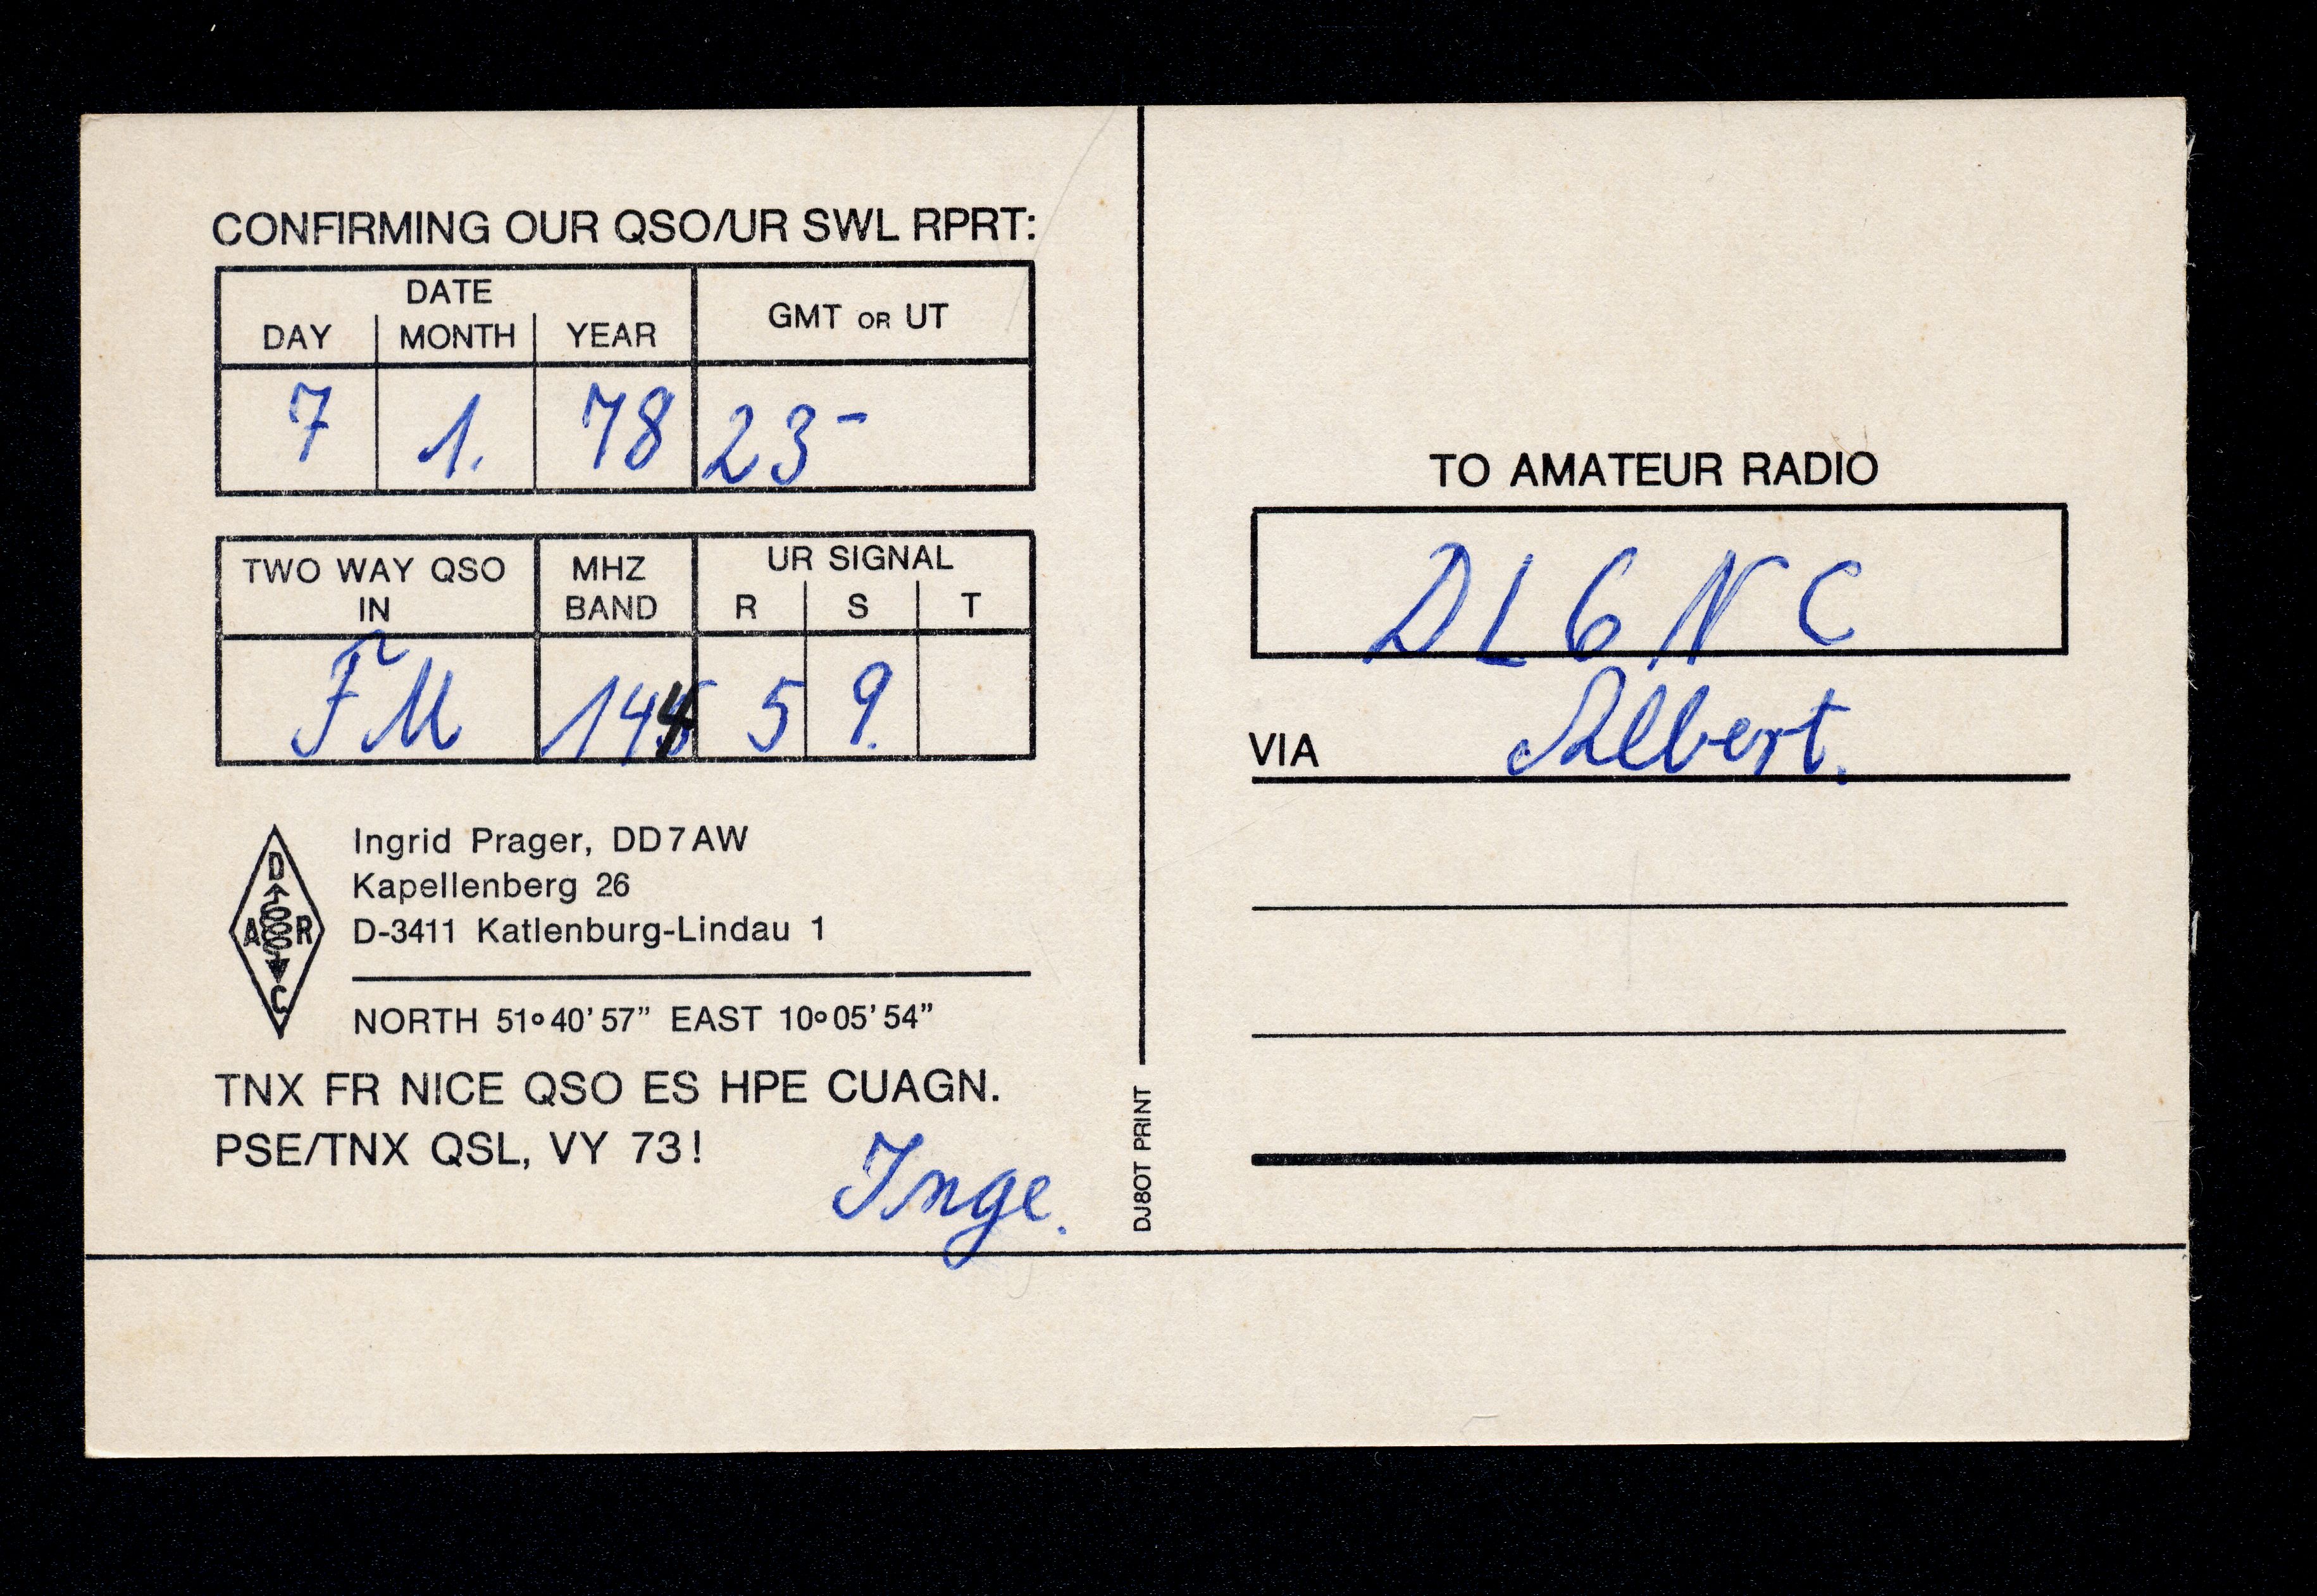 CONFIRMING OUR QSO/UR SWL RPRT:
DATE
DAY MONTH YEAR GMT OR UT
7 1. 78 23-
TWO WAY QSO IN MHZ BAND UR SIGNAL R S T
FM 144 5 9.
D
A R
C
Ingrid Prager, DD7AW
Kapellenberg 26
D-3411 Katlenburg-Lindau 1
NORTH 51°40'57" EAST 10°05'54"
TNX FR NICE QSO ES HPE CUAGN.
PSE/TNX QSL, VY 73!
Inge.
DJ8OT PRINT
TO AMATEUR RADIO
DL6NC
VIA Albert.